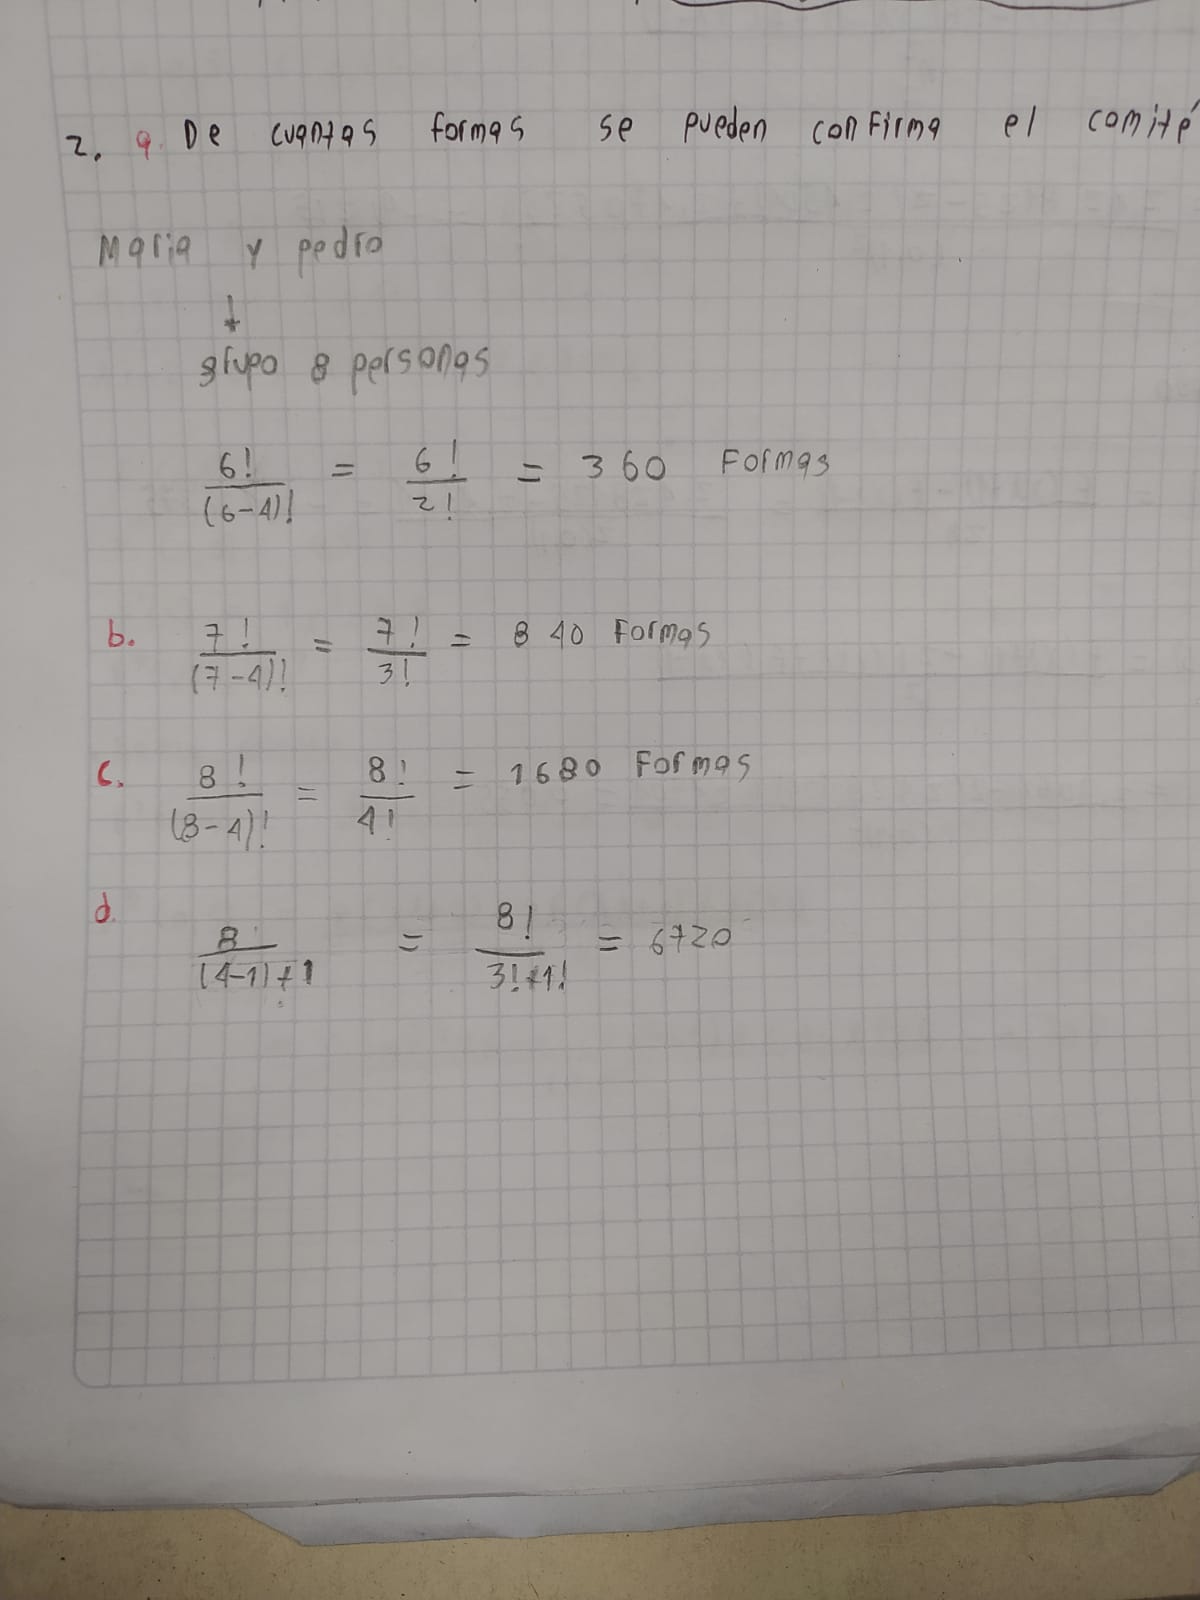 2. a. De cuantas formas se pueden confirma el comité
Maria y pedro
grupo 8 personas
6! / (6-4)! = 6! / 2! = 360 Formas
b. 7! / (7-4)! = 7! / 3! = 840 Formas
c. 8! / (8-4)! = 8! / 4! = 1680 Formas
d. 8! / (4-1)+1! = 8! / 3!+1! = 6720